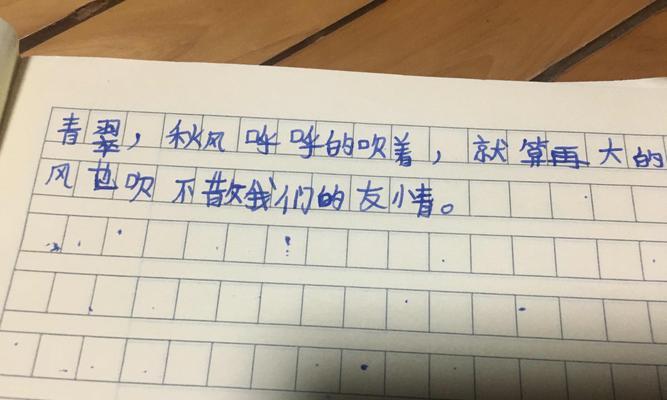 青翠，秋风呼呼的吹着，就算再大的
风也吹不散我们的友情。